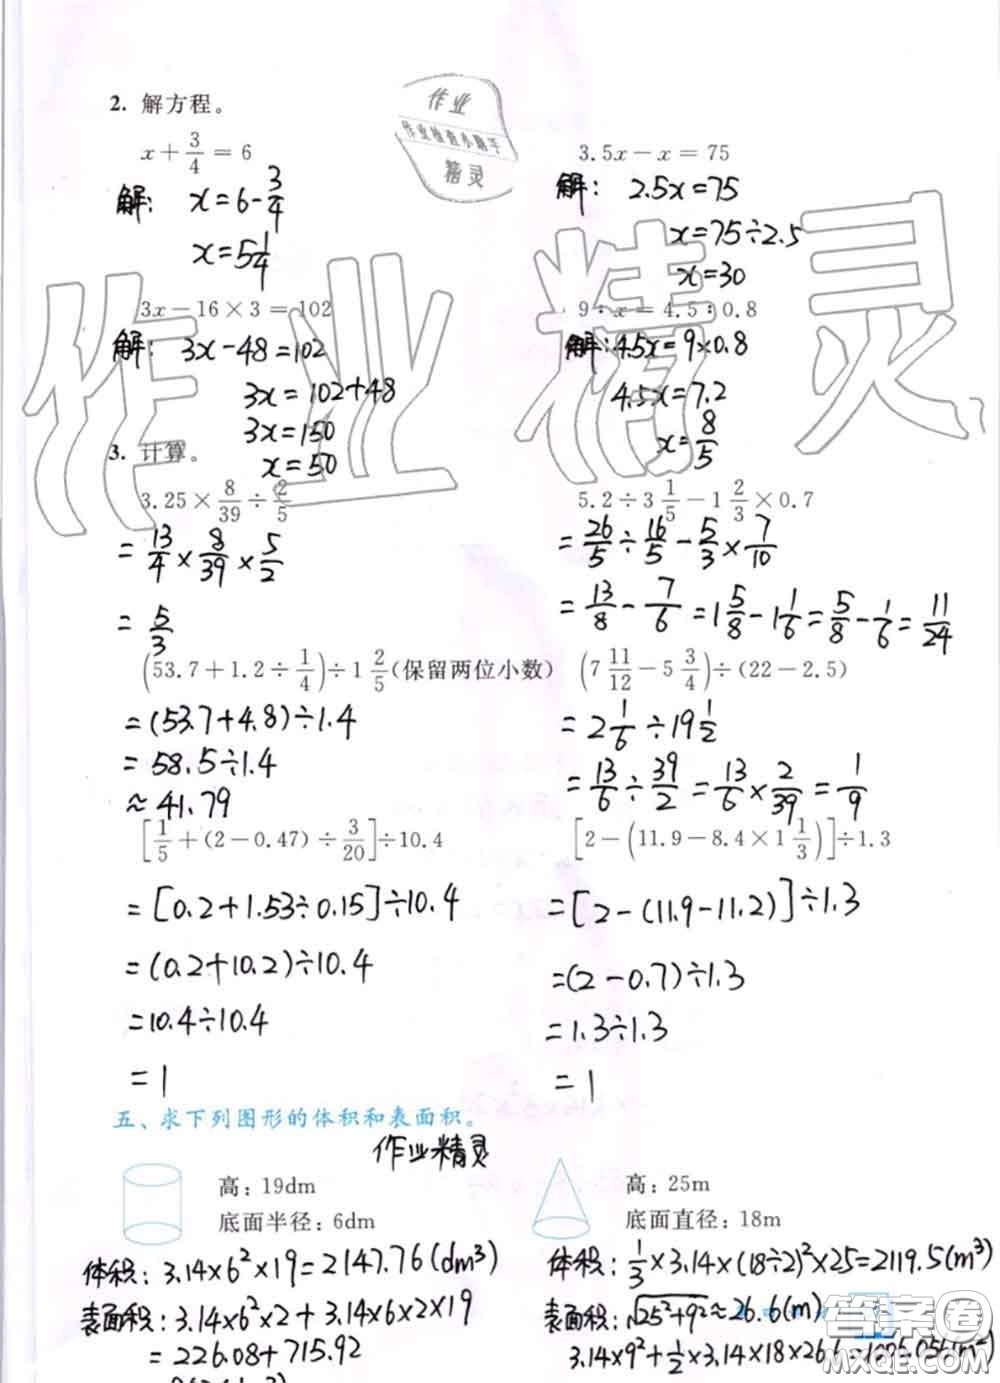 作业
作业检查小助手
精灵
2. 解方程。
x + 3/4 = 6
解: x = 6 - 3/4
x = 5 1/4
3.5x - x = 75
解: 2.5x = 75
x = 75 ÷ 2.5
x = 30
3x - 16 × 3 = 102
解: 3x - 48 = 102
3x = 102 + 48
3x = 150
x = 50
9 : x = 4.5 : 0.8
解: 4.5x = 9 × 0.8
4.5x = 7.2
x = 8/5
作业精灵
3. 计算。
3.25 × 8/39 ÷ 2/5
= 13/4 × 8/39 × 5/2
= 5/3
5.2 ÷ 3 1/5 - 1 2/3 × 0.7
= 26/5 ÷ 16/5 - 5/3 × 7/10
= 13/8 - 7/6 = 1 5/8 - 1 1/6 = 5/8 - 1/6 = 11/24
(53.7 + 1.2 ÷ 1/4) ÷ 1 2/5 (保留两位小数)
= (53.7 + 4.8) ÷ 1.4
= 58.5 ÷ 1.4
≈ 41.79
(7 11/12 - 5 3/4) ÷ (22 - 2.5)
= 2 1/6 ÷ 19 1/2
= 13/6 ÷ 39/2 = 13/6 × 2/39 = 1/9
[1/5 + (2 - 0.47) ÷ 3/20] ÷ 10.4
= [0.2 + 1.53 ÷ 0.15] ÷ 10.4
= (0.2 + 10.2) ÷ 10.4
= 10.4 ÷ 10.4
= 1
[2 - (11.9 - 8.4 × 1 1/3)] ÷ 1.3
= [2 - (11.9 - 11.2)] ÷ 1.3
= (2 - 0.7) ÷ 1.3
= 1.3 ÷ 1.3
= 1
五、求下列图形的体积和表面积。
作业精灵
高: 19dm
底面半径: 6dm
体积: 3.14×6²×19 = 2147.76 (dm³)
表面积: 3.14×6²×2 + 3.14×6×2×19
= 226.08 + 715.92
高: 25m
底面直径: 18m
体积: 1/3 × 3.14 × (18÷2)² × 25 = 2119.5 (m³)
表面积: √25²+9² ≈ 26.6 (m)
答案圈
MXQE.COM